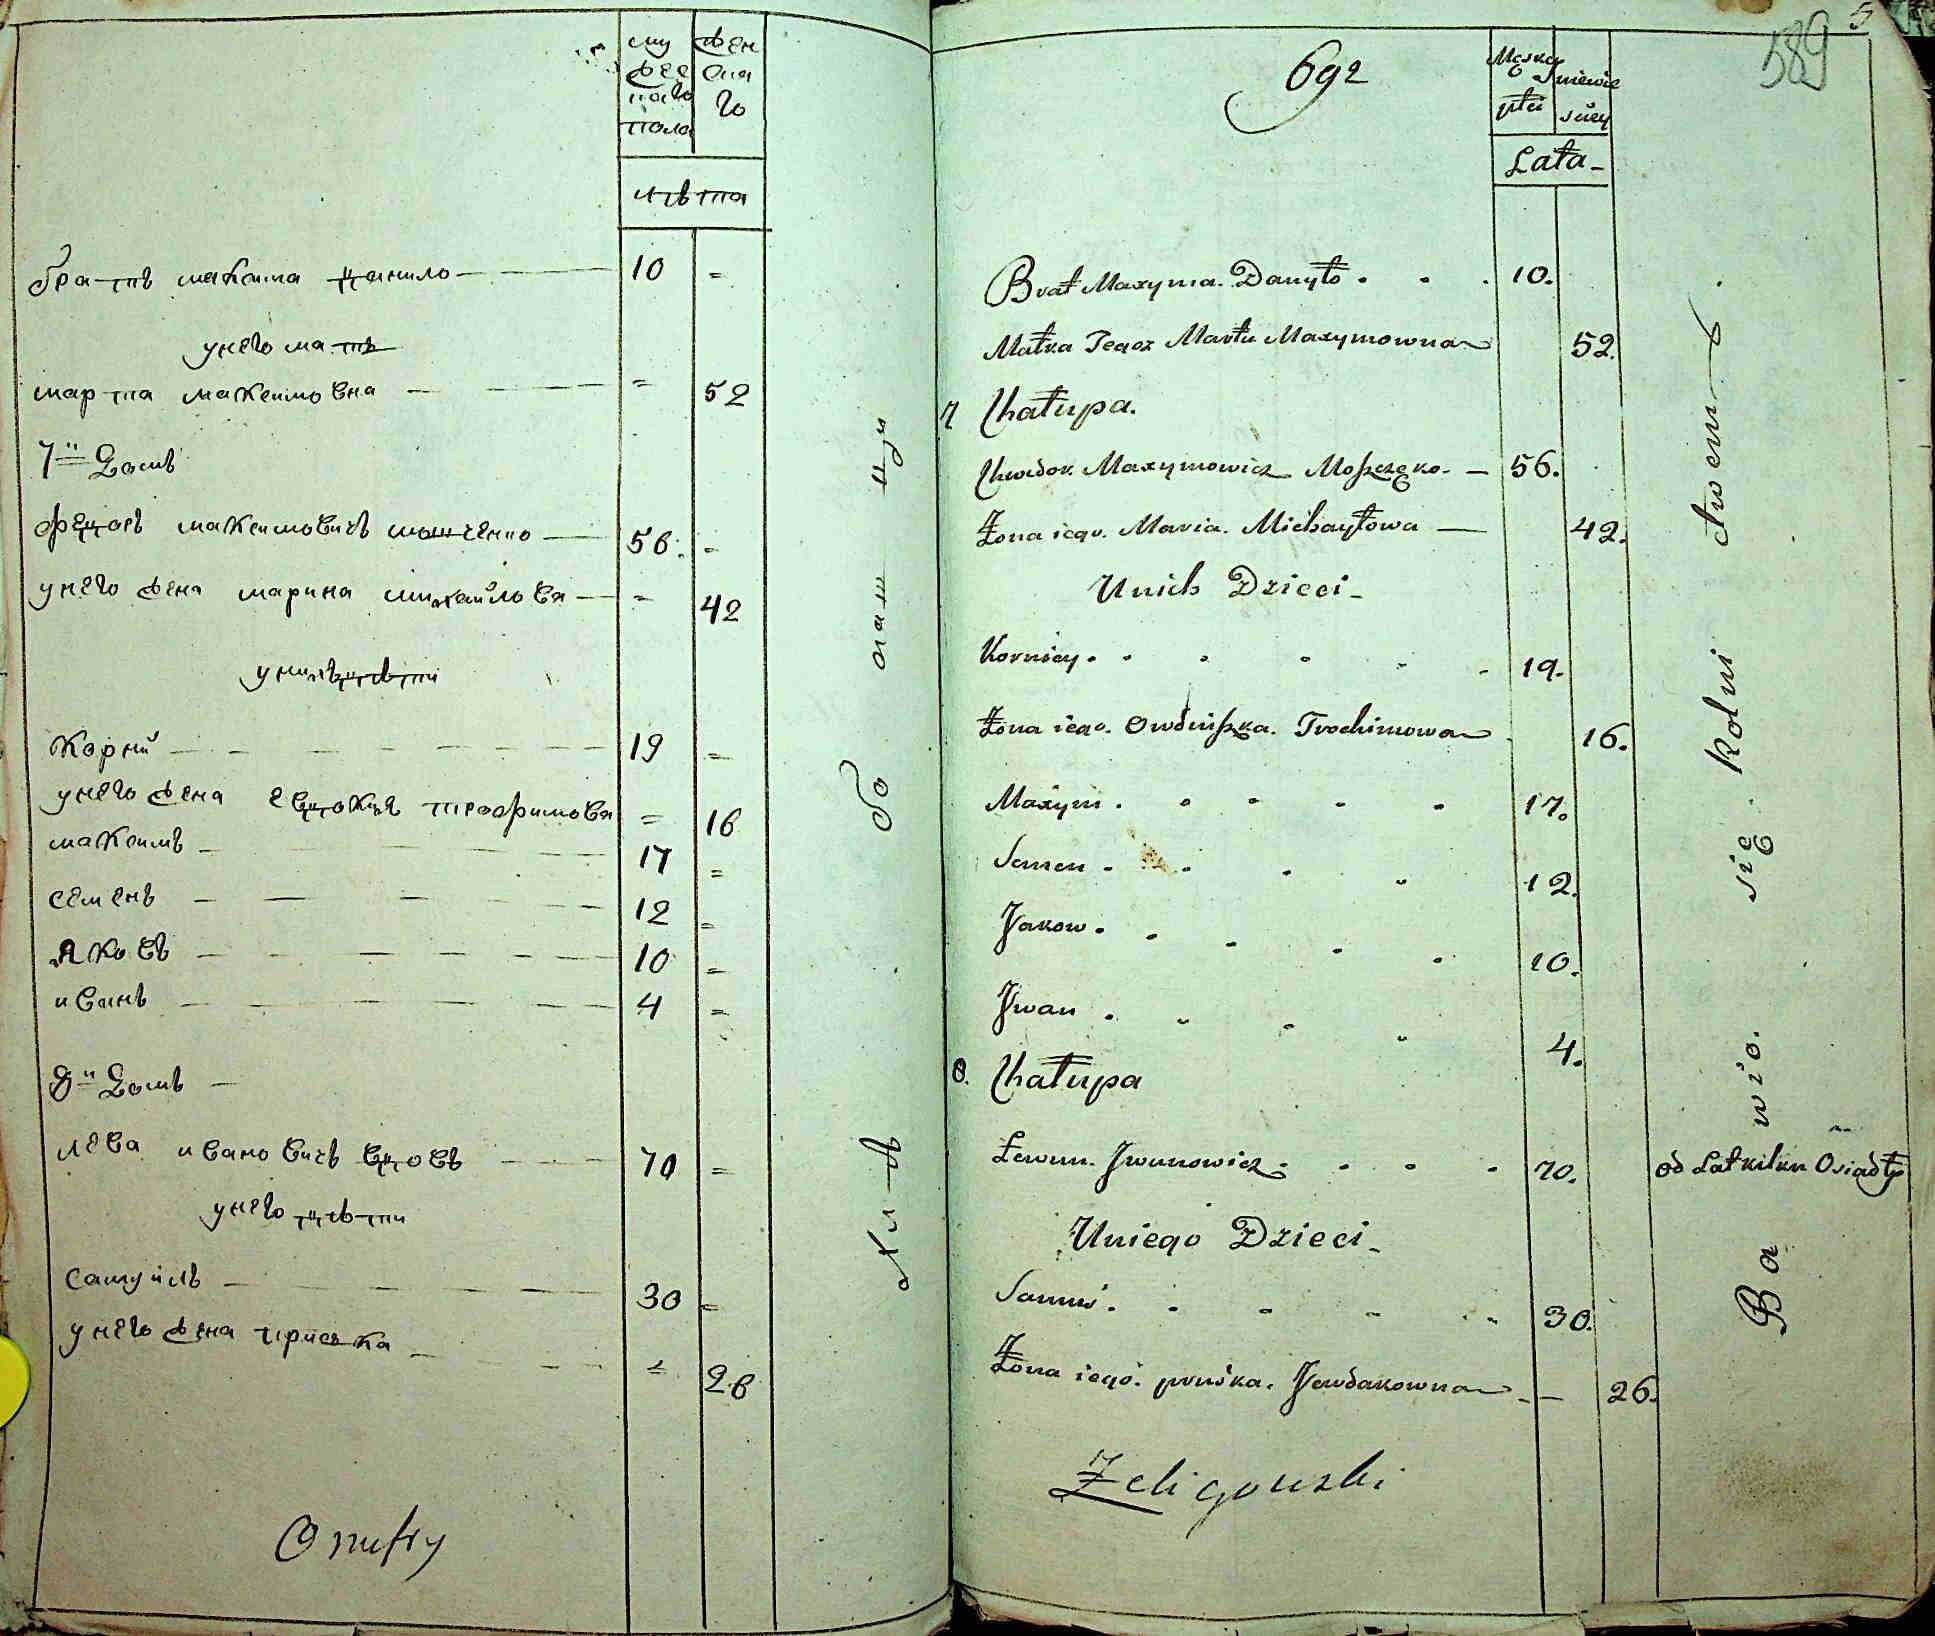 мужескаго пола
женскаго
лѣта
братъ максима данило 10 =
у него мать
марта максимовна = 52
7й Домъ
федоръ максимовичъ мошченко 56. =
у него жена марина михайлова = 42
у нихъ дѣти
Корнѣй 19 =
у него жена евдокия трофимова = 16
максимъ 17 =
семенъ 12 =
яковъ 10 =
иванъ 4 =
8й Домъ
лева ивановичъ вдовъ 70 =
у него дѣти
самуйлъ 30 =
у него жена приська = 26
Onufry
692
589
5
Męskey płci
Lata
Brat Maxyma. Danyło . . . 10.
Matka Tegoz Marta Maxymowna 52.
7 Chałupa.
Chwedor Maxymowicz Moszczęko. 56.
Żona iego. Maria. Michayłowa 42.
Unich Dzieci
Korniey . . . . . . 19.
Żona iego. Owdiuszka. Trochimowa 16.
Maxym . . . . . 17.
Semen . . . . . 12.
Jakow . . . . . 10.
Jwan . . . . . 4.
8. Chałupa
Lewun. Jwanowicz . . . . 70.
od Lat kilku Osiadły
Uniego Dzieci
Samuś . . . . . 30.
Żona iego. pruśka. Jewdakowna 26.
Żeligowski
Bawio. się. Rolni ctwem